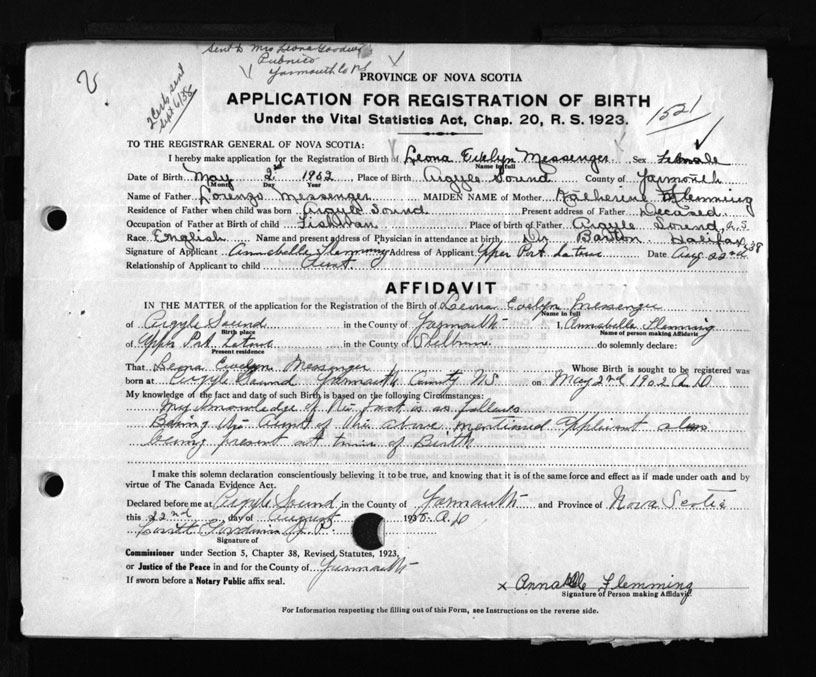 Sent to Mrs Leona Goodwin
Pubnico
Yarmouth Co N.S.
2 Certs sent
Sept 6/38
PROVINCE OF NOVA SCOTIA
APPLICATION FOR REGISTRATION OF BIRTH
Under the Vital Statistics Act, Chap. 20, R. S. 1923.
1521
TO THE REGISTRAR GENERAL OF NOVA SCOTIA:
I hereby make application for the Registration of Birth of Leona Evelyn Messenger Sex Female
Name in full
Date of Birth May 2nd 1902 Place of Birth Argyle Sound County of Yarmouth
Month Day Year
Name of Father Lorenzo Messenger MAIDEN NAME of Mother Katherine Flemming
Residence of Father when child was born Argyle Sound Present address of Father Decased
Occupation of Father at Birth of child Fishman Place of birth of Father Argyle Sound, N.S.
Race English Name and present address of Physician in attendance at birth Dr Barton Halifax
Signature of Applicant Annabelle Flemming Address of Applicant Upper Port Latour Date Aug 22nd 38
Relationship of Applicant to child Aunt
AFFIDAVIT
IN THE MATTER of the application for the Registration of the Birth of Leona Evelyn Messenger
Name in full
of Argyle Sound in the County of Yarmouth I, Annabella Flemming
Birth place Name of person making affidavit
of Upper Port Latour in the County of Shelburne do solemnly declare:
Present residence
That Leona Evelyn Messenger Whose Birth is sought to be registered was
born at Argyle Sound Yarmouth County N.S on May 2nd 1902 A.D
My knowledge of the fact and date of such Birth is based on the following Circumstances:
My Knowledge of this fact is as follows
Being the Aunt of the above mentioned applicant also
being present at time of Birth
I make this solemn declaration conscientiously believing it to be true, and knowing that it is of the same force and effect as if made under oath and by
virtue of The Canada Evidence Act.
Declared before me at Argyle Sound in the County of Yarmouth and Province of Nova Scotia
this 22nd day of August 1938 A.D
Goodwin J. P.
Signature of
Commissioner under Section 5, Chapter 38, Revised Statutes, 1923,
or Justice of the Peace in and for the County of Yarmouth
If sworn before a Notary Public affix seal.
x Annabelle Flemming
Signature of Person making Affidavit.
For Information respecting the filling out of this Form, see Instructions on the reverse side.